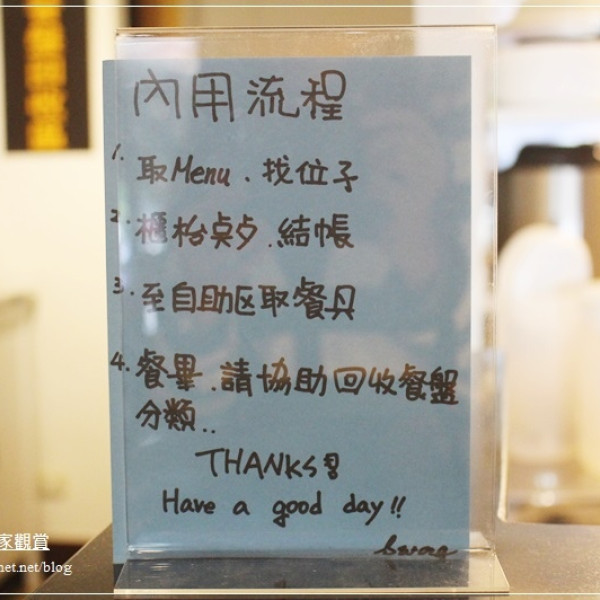 內用流程
1. 取Menu、找位子
2. 櫃枱桌夕.結帳
3. 至自助区取餐具
4. 餐畢.請協助回收餐盤
分類..
THANKS
Have a good day!!
家觀賞
net.net/blog